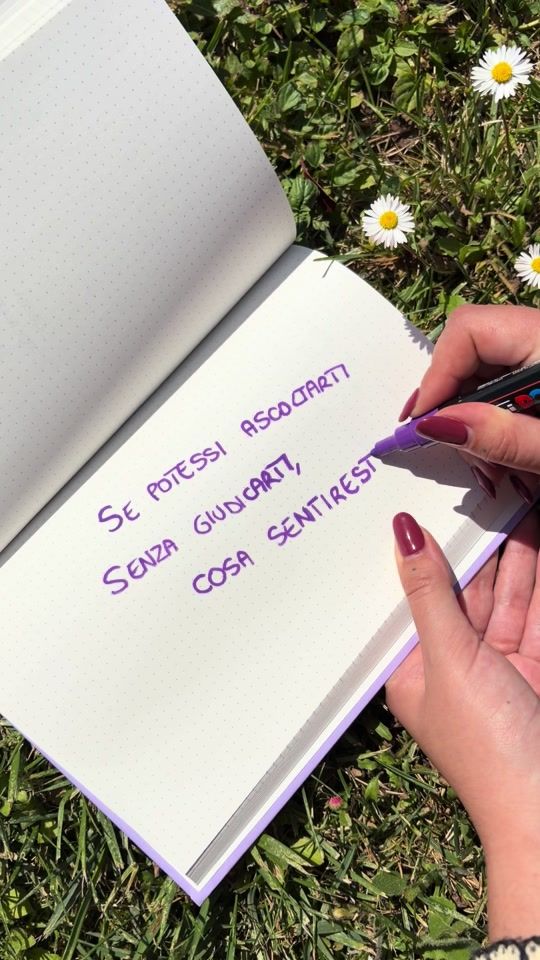 SE POTESSI ASCOLTARTI
SENZA GIUDICARTI,
COSA SENTIREST